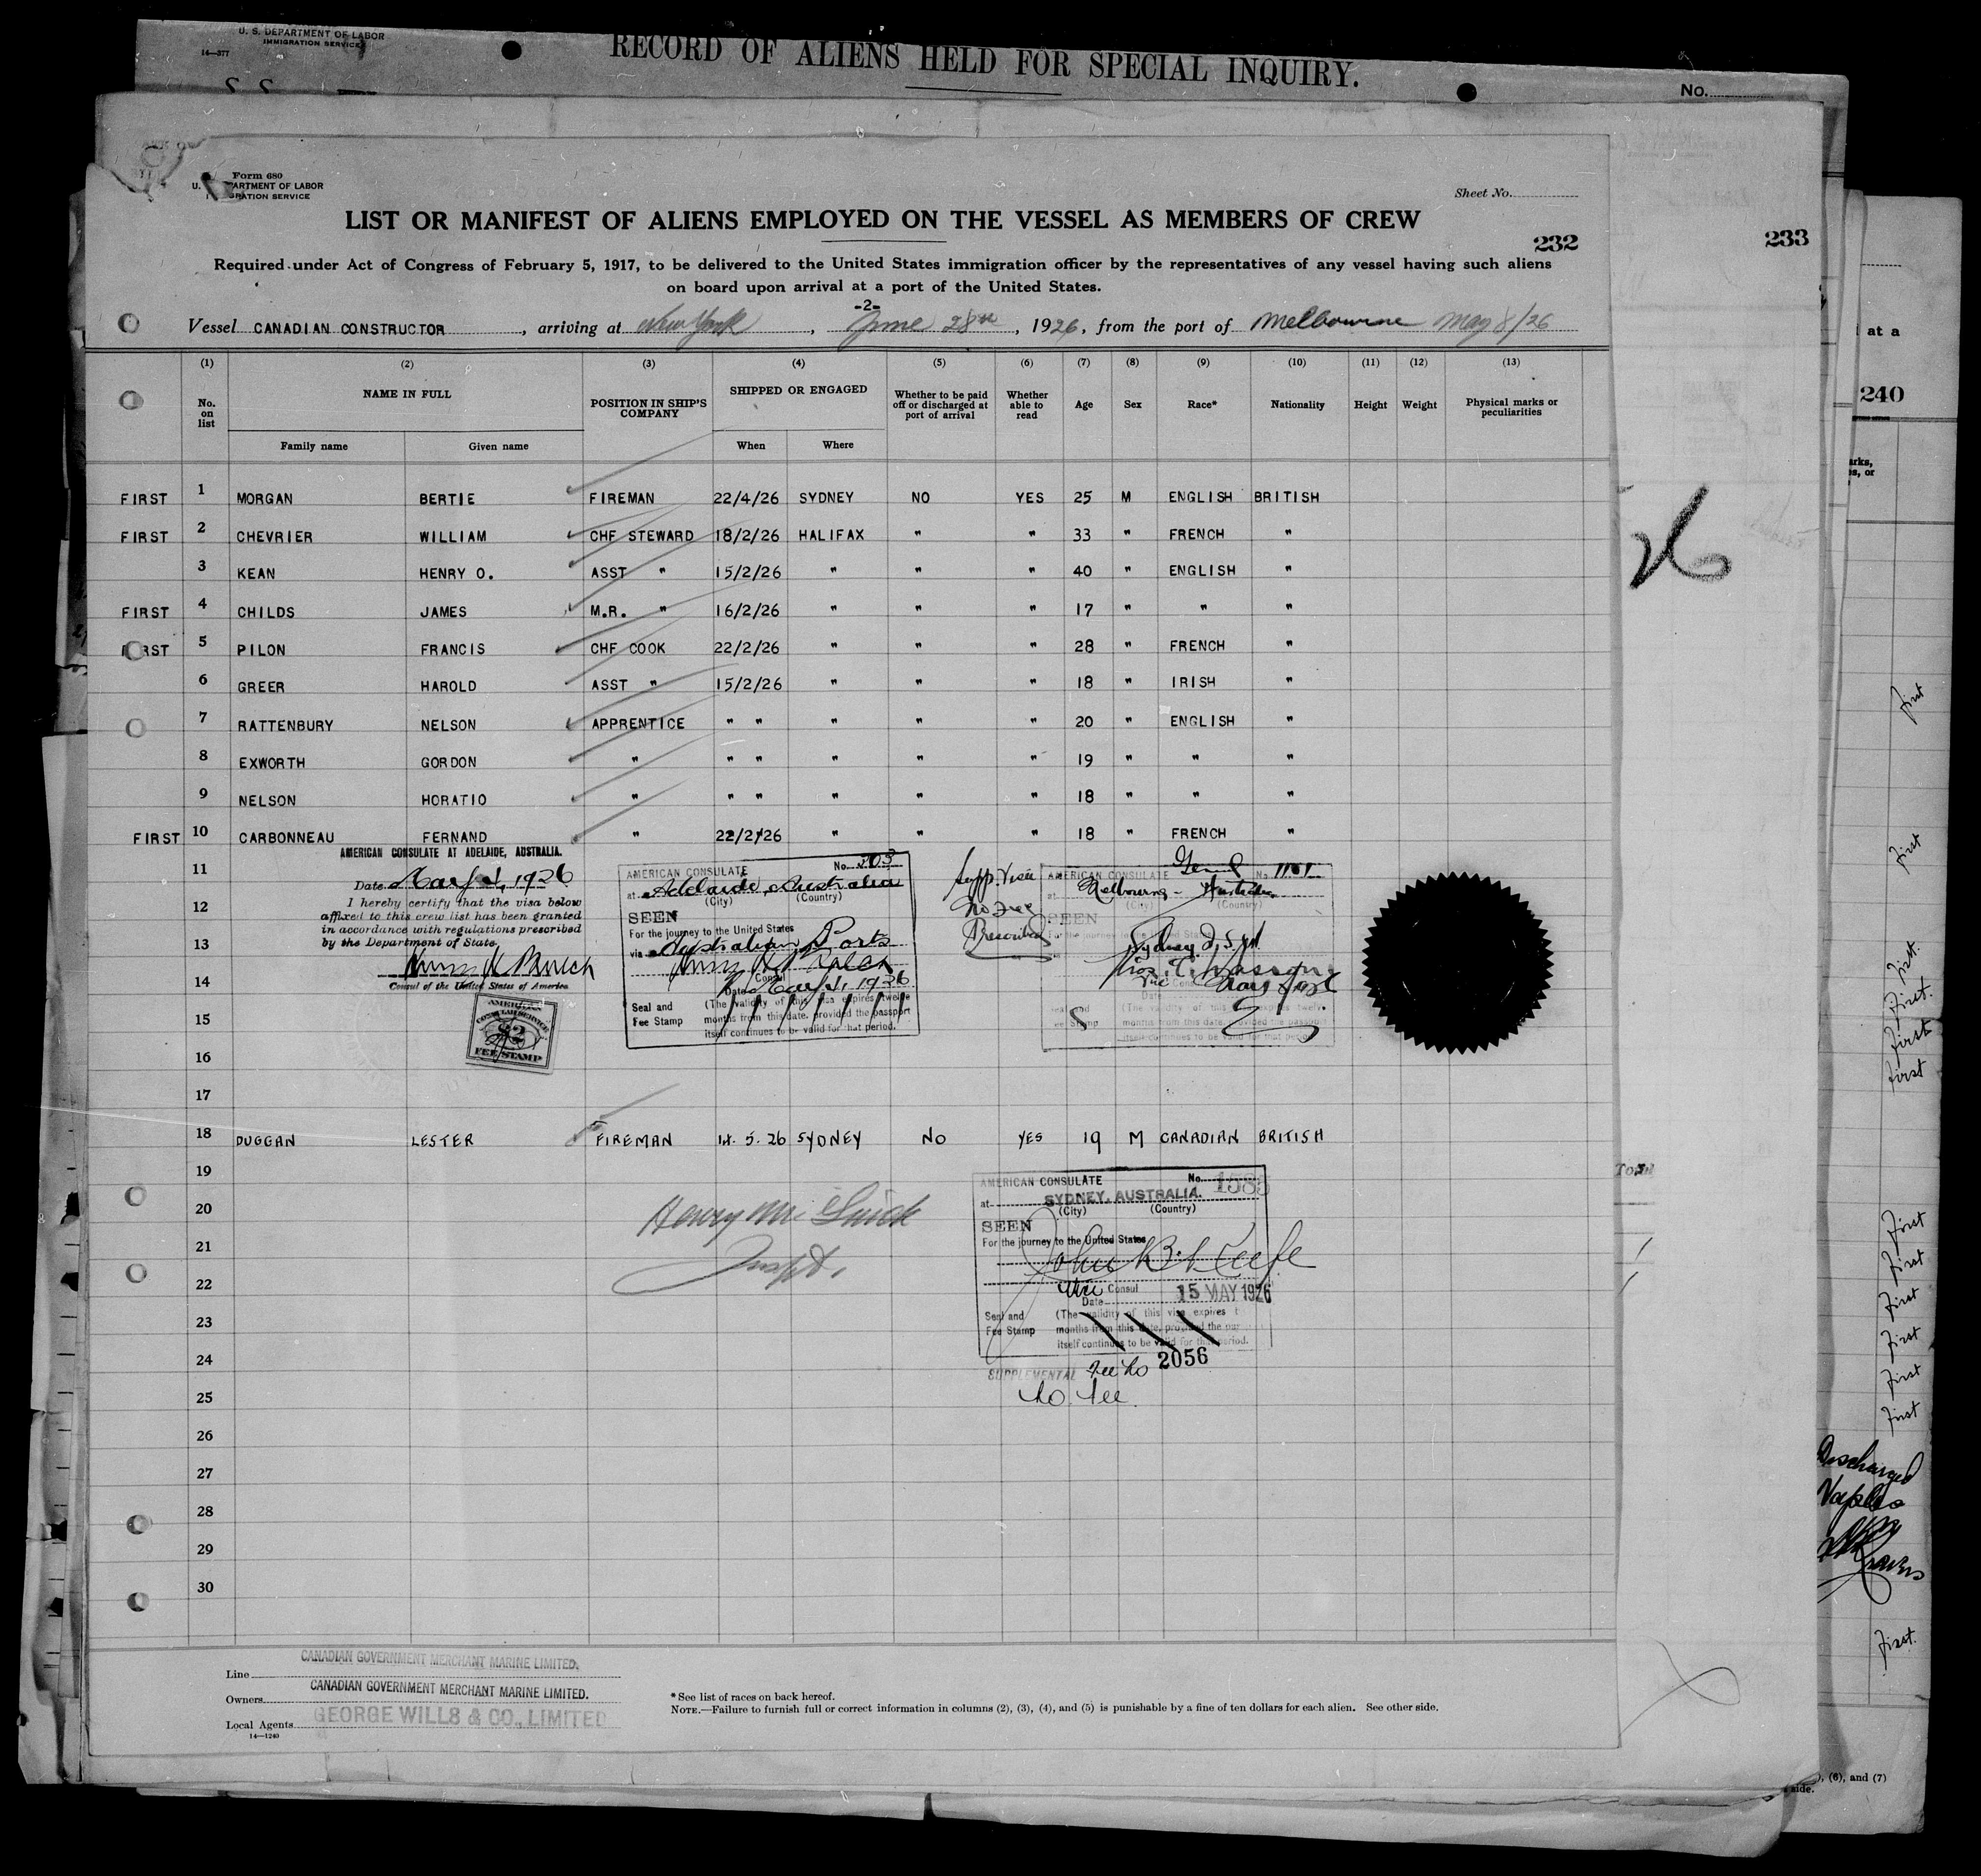 U. S. DEPARTMENT OF LABOR
IMMIGRATION SERVICE
14—377
RECORD OF ALIENS HELD FOR SPECIAL INQUIRY.
No.
S S
Form 680
U. ARTMENT OF LABOR
GRATION SERVICE
Sheet No.
LIST OR MANIFEST OF ALIENS EMPLOYED ON THE VESSEL AS MEMBERS OF CREW
232
233
Required under Act of Congress of February 5, 1917, to be delivered to the United States immigration officer by the representatives of any vessel having such aliens
on board upon arrival at a port of the United States.
-2-
Vessel CANADIAN CONSTRUCTOR, arriving at New York, June 28th, 1926, from the port of Melbourne May 8/26
at a
240
(1) (2) (3) (4) (5) (6) (7) (8) (9) (10) (11) (12) (13)
No. on list NAME IN FULL POSITION IN SHIP'S COMPANY SHIPPED OR ENGAGED Whether to be paid off or discharged at port of arrival Whether able to read Age Sex Race* Nationality Height Weight Physical marks or peculiarities
Family name Given name When Where
FIRST 1 MORGAN BERTIE FIREMAN 22/4/26 SYDNEY NO YES 25 M ENGLISH BRITISH
FIRST 2 CHEVRIER WILLIAM CHF STEWARD 18/2/26 HALIFAX " " 33 " FRENCH "
3 KEAN HENRY O. ASST " 15/2/26 " " " 40 " ENGLISH "
FIRST 4 CHILDS JAMES M.R. " 16/2/26 " " " 17 " " "
FIRST 5 PILON FRANCIS CHF COOK 22/2/26 " " " 28 " FRENCH "
6 GREER HAROLD ASST " 15/2/26 " " " 18 " IRISH "
7 RATTENBURY NELSON APPRENTICE " " " " " 20 " ENGLISH "
8 EXWORTH GORDON " " " " " " 19 " " "
9 NELSON HORATIO " " " " " " 18 " " "
FIRST 10 CARBONNEAU FERNAND " 22/2/26 " " " 18 " FRENCH "
26
11
12
13
14
15
16
17
AMERICAN CONSULATE AT ADELAIDE, AUSTRALIA.
Date May 4, 1926
I hereby certify that the visa below
affixed to this crew list has been granted
in accordance with regulations prescribed
by the Department of State.
Consul of the United States of America
AMERICAN
CONSULAR SERVICE
$2
FEE STAMP
AMERICAN CONSULATE No. 203
at Adelaide, Australia
(City) (Country)
SEEN
For the journey to the United States
via Australian Ports
Consul
Date May 4, 1926
Seal and Fee Stamp
(The validity of this visa expires twelve
months from this date, provided the passport
itself continues to be valid for that period.
Supp. Visa
No Fee
Prescribed
AMERICAN CONSULATE No. 1101
at Melbourne - Australia
(City) (Country)
SEEN
For the journey to the United States
Date
Seal and Fee Stamp
(The validity of this visa expires twelve
months from this date, provided the passport
itself continues to be valid for that period.
18 DUGGAN LESTER FIREMAN 14. 5. 26 SYDNEY NO YES 19 M CANADIAN BRITISH
19
20
21
22
23
24
25
26
27
28
29
30
Inspt.
AMERICAN CONSULATE No. 158
at SYDNEY, AUSTRALIA.
(City) (Country)
SEEN
For the journey to the United States
Vice Consul
Date 15 MAY 1926
Seal and Fee Stamp
(The validity of this visa expires
months from this date, provided the
itself continues to be valid for that period.
SUPPLEMENTAL Fee No 2056
No fee.
first
first
first.
first.
first
first
first
first
first
first
first
first
Discharged
Naples
first.
Line CANADIAN GOVERNMENT MERCHANT MARINE LIMITED.
Owners CANADIAN GOVERNMENT MERCHANT MARINE LIMITED.
Local Agents GEORGE WILLS & CO., LIMITED
14—1240
* See list of races on back hereof.
NOTE.—Failure to furnish full or correct information in columns (2), (3), (4), and (5) is punishable by a fine of ten dollars for each alien. See other side.
, (6), and (7)
side.